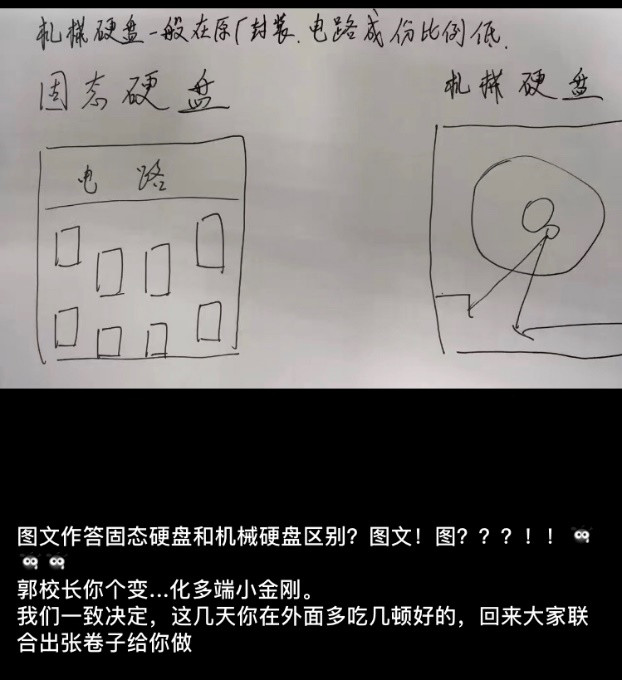 机械硬盘一般在原厂封装.电路成份比例低.
固态硬盘
机械硬盘
电路
图文作答固态硬盘和机械硬盘区别？图文！图？？？！！
郭校长你个变...化多端小金刚。
我们一致决定，这几天你在外面多吃几顿好的，回来大家联
合出张卷子给你做